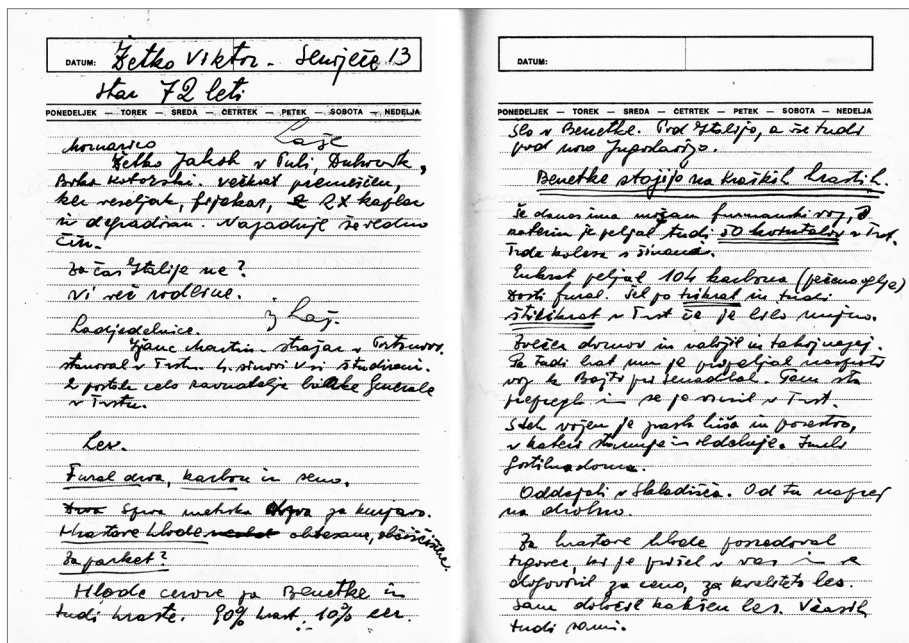 DATUM: Žetko Viktor - Senožeče 13
star 72 leti
PONEDELJEK — TOREK — SREDA — ČETRTEK — PETEK — SOBOTA — NEDELJA
Laže
Mornarico
Žetko Jakob v Puli, Dubrovnik,
Boka Kotorska. Večkrat premeščen,
ker veseljak, frjakar, 2x kaplar
in degradiran. Najadnije še vedno
čin.
Za čas Italije ne?
Ni več rodbine.
Iz Laž.
Ladjedelnice.
Žjanc Martin - stražar v
stanoval v Trstu. 4 sinovi vsi študirani.
postale celo ravnatelje banke Generale
v Trstu.
Les.
Fural drva, karbon in seno.
Drva Sprva metrska drva za kurjavo.
Hrastove hlode obtesane,
Za parket?
Hlode cerove za Benetke in
tudi hraste. 90% hrast. 10% cer.
DATUM:
PONEDELJEK — TOREK — SREDA — ČETRTEK — PETEK — SOBOTA — NEDELJA
Šlo v Benetke. Pod Italijo, a še tudi
pod novo Jugoslavijo.
Benetke stojijo na kraških hrastih.
Še danes ima možam furmanski voz, s
katerim je peljal tudi 50 kvintalov v Trst.
Trda kolesa s šinami.
Enkrat peljal 104 karbona (ješenoglja)
Dosti fural. Šel po trikrat in tudi
štirikrat v Trst če je bilo nujno.
Zvečer domov in naložil in takoj nazaj.
Pa tudi brat mu je pripeljal nasproti
voz k Bajti pri Senadolah. Tam sta
prepregla in se je vrnil v Trst.
S tem vozom je prašk hiša in posestvo,
v kateri stanuje in obdeluje. Imeli
gostilna doma.
Oddajali v skladišča. Od tu naprej
na drobno.
Za hrastove hlode posredoval
trgovec, ki je prišel v vas in se
dogovoril za ceno, za kvaliteto les.
Sam določil kakšen les. Včasih
tudi sami.